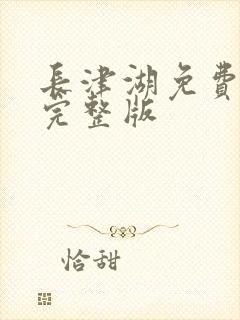 長津湖免費
完整版
恰甜